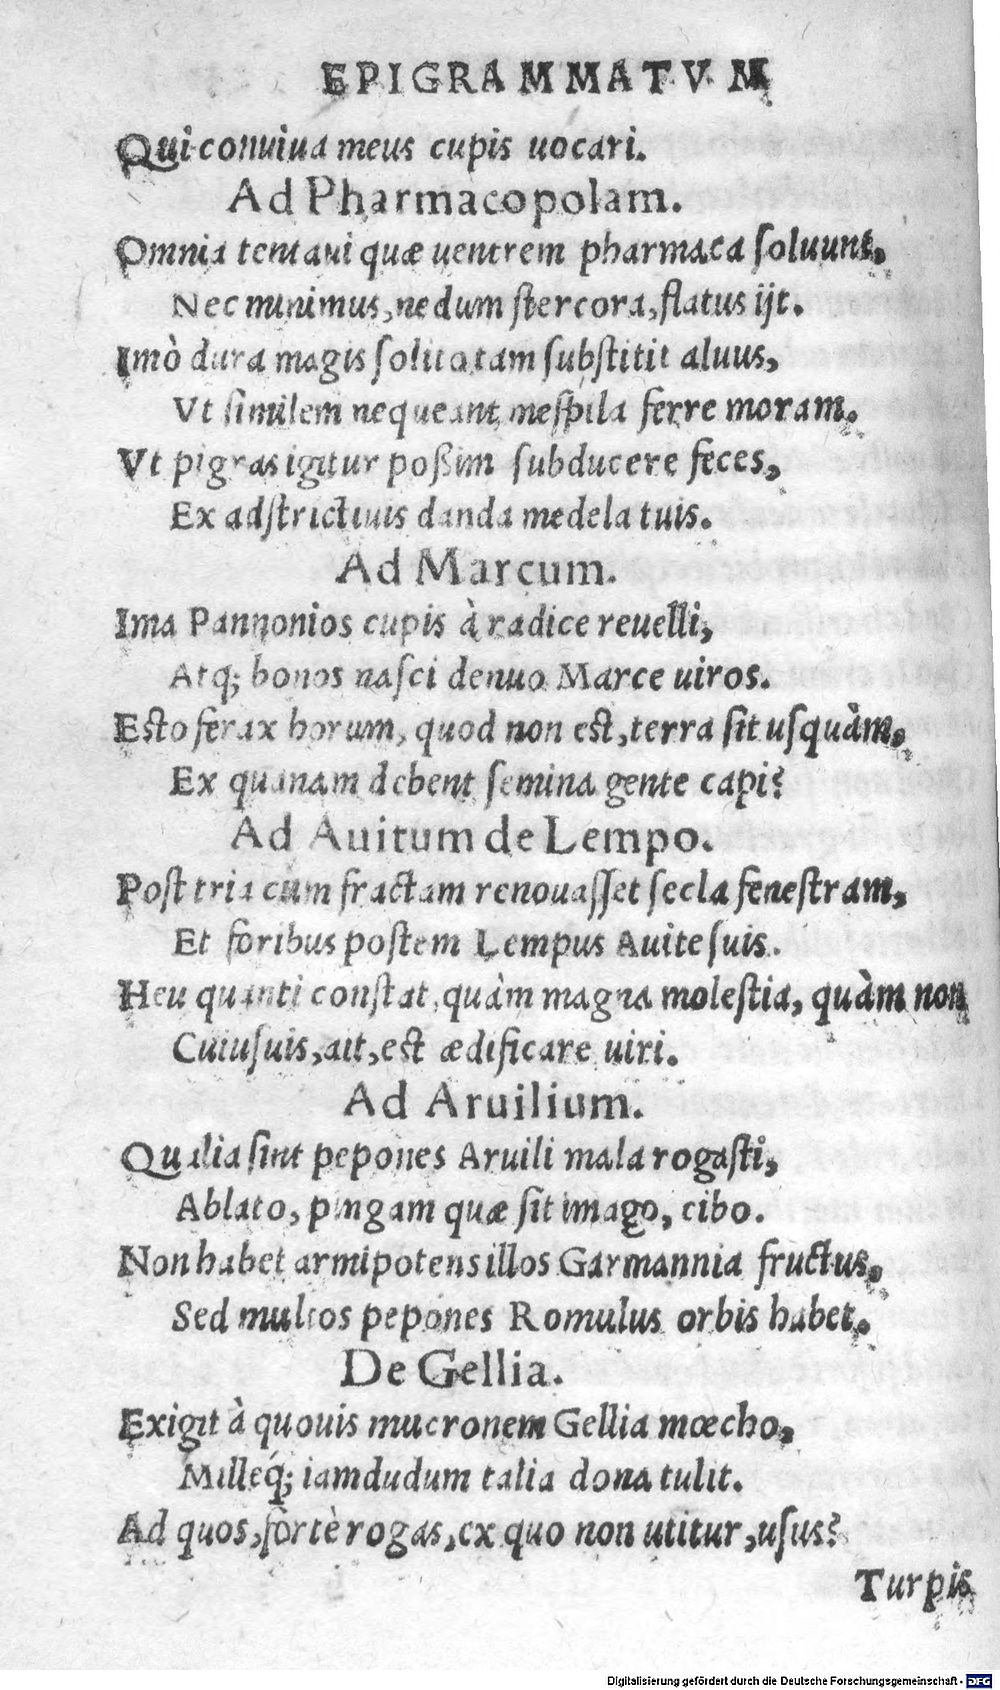 EPIGRAMMATVM
Qui conuiua meus cupis uocari.
Ad Pharmacopolam.
Omnia tentaui quæ uentrem pharmaca ſoluunt,
Nec minimus, nedum ſtercora, flatus ijt.
Imò dura magis ſolito tam ſubſtitit aluus,
Vt ſimilem nequeant meſpila ferre moram.
Vt pigras igitur poßim ſubducere feces,
Ex adſtrictiuis danda medela tuis.
Ad Marcum.
Ima Pannonios cupis à radice reuelli,
Atq; bonos naſci denuo Marce uiros.
Eſto ferax horum, quod non eſt, terra ſit uſquàm,
Ex quanam debent ſemina gente capi?
Ad Auitum de Lempo.
Poſt tria cum fractam renouaſſet ſecla feneſtram,
Et foribus poſtem Lempus Auite ſuis.
Heu quanti conſtat, quàm magna moleſtia, quàm non
Cuiuſuis, ait, eſt ædificare uiri.
Ad Aruilium.
Qualia ſint pepones Aruili mala rogaſti,
Ablato, pingam quæ ſit imago, cibo.
Non habet armipotens illos Garmannia fructus,
Sed multos pepones Romulus orbis habet.
De Gellia.
Exigit à quouis mucronem Gellia mœcho,
Milleq́; iamdudum talia dona tulit.
Ad quos, fortè rogas, ex quo non utitur, uſus?
Turpis
Digitalisierung gefördert durch die Deutsche Forschungsgemeinschaft - DFG